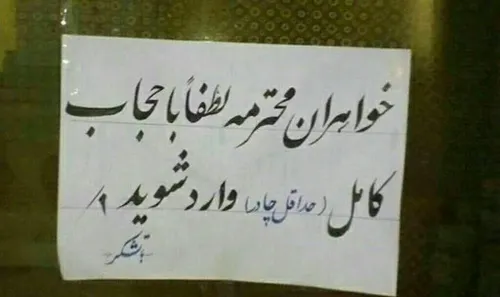 خواهران محترمه لطفاً با حجاب
کامل (حداقل چادر) وارد شوید
باتشکر